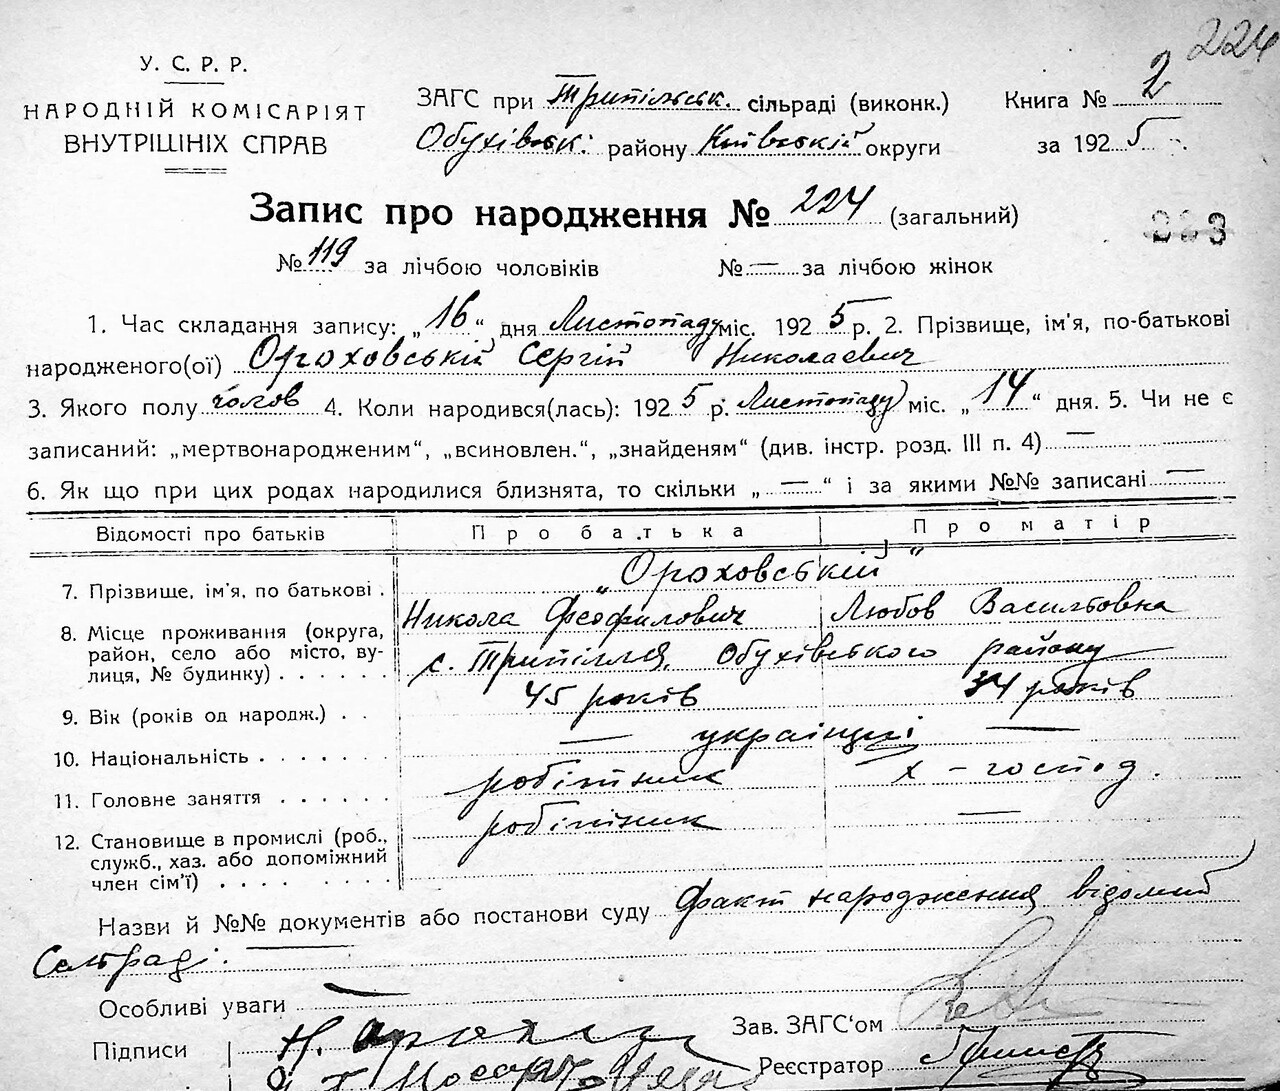 224
У. С. Р. Р.
НАРОДНІЙ КОМІСАРІЯТ
ВНУТРІШНІХ СПРАВ
ЗАГС при Трипільськ. сільраді (виконк.)
Обухівськ: району Київській округи
Книга № 2
за 1925
Запис про народження № 224 (загальний)
223
№ 119 за лічбою чоловіків № — за лічбою жінок
1. Час складання запису: „16“ дня Листопаду міс. 1925 р. 2. Прізвище, ім'я, по-батькові
народженого(ої) Ороховській Сергій Николаевич
3. Якого полу чолов 4. Коли народився(лась): 1925 р. Листопаду міс. „14“ дня. 5. Чи не є
записаний: „мертвонародженим“, „всиновлен.“, „знайденям“ (див. інстр. розд. III п. 4) —
6. Як що при цих родах народилися близнята, то скільки „ — “ і за якими №№ записані —
Відомості про батьків Про батька Про матір
7. Прізвище, ім'я, по батькові . „Ороховській“
Никола Феофилович Любов Василтовна
8. Місце проживання (округа,
район, село або місто, ву-
лиця, № будинку) . . . . . . с. Трипілля, Обухівського району
9. Вік (років од народж.) . . 45 років 34 років
10. Національність . . . . . . . — українці —
11. Головне заняття . . . . . . робітник х – господ.
12. Становище в промислі (роб.,
служб., хаз. або допоміжний
член сім'ї) . . . . . . . . робітник —
Назви й №№ документів або постанови суду Факт народження відомий
Сельраді.
Особливі уваги —
Зав. ЗАГС‘ом
Підписи
Реєстратор